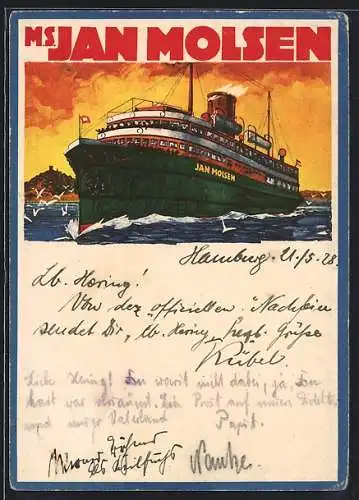 MS JAN MOLSEN
JAN MOLSEN
Hamburg. 21./5. 28.
Lb. Hering!
Von der "officiellen" Nachfeier
sendet Dir, lb. Hering, Grüße
Rübel
Liebe Hering! Du warst nicht dabei, ja, Du
hast was versäumt. Ein Prost auf unsern
und Vaterland Papst.
Nante.